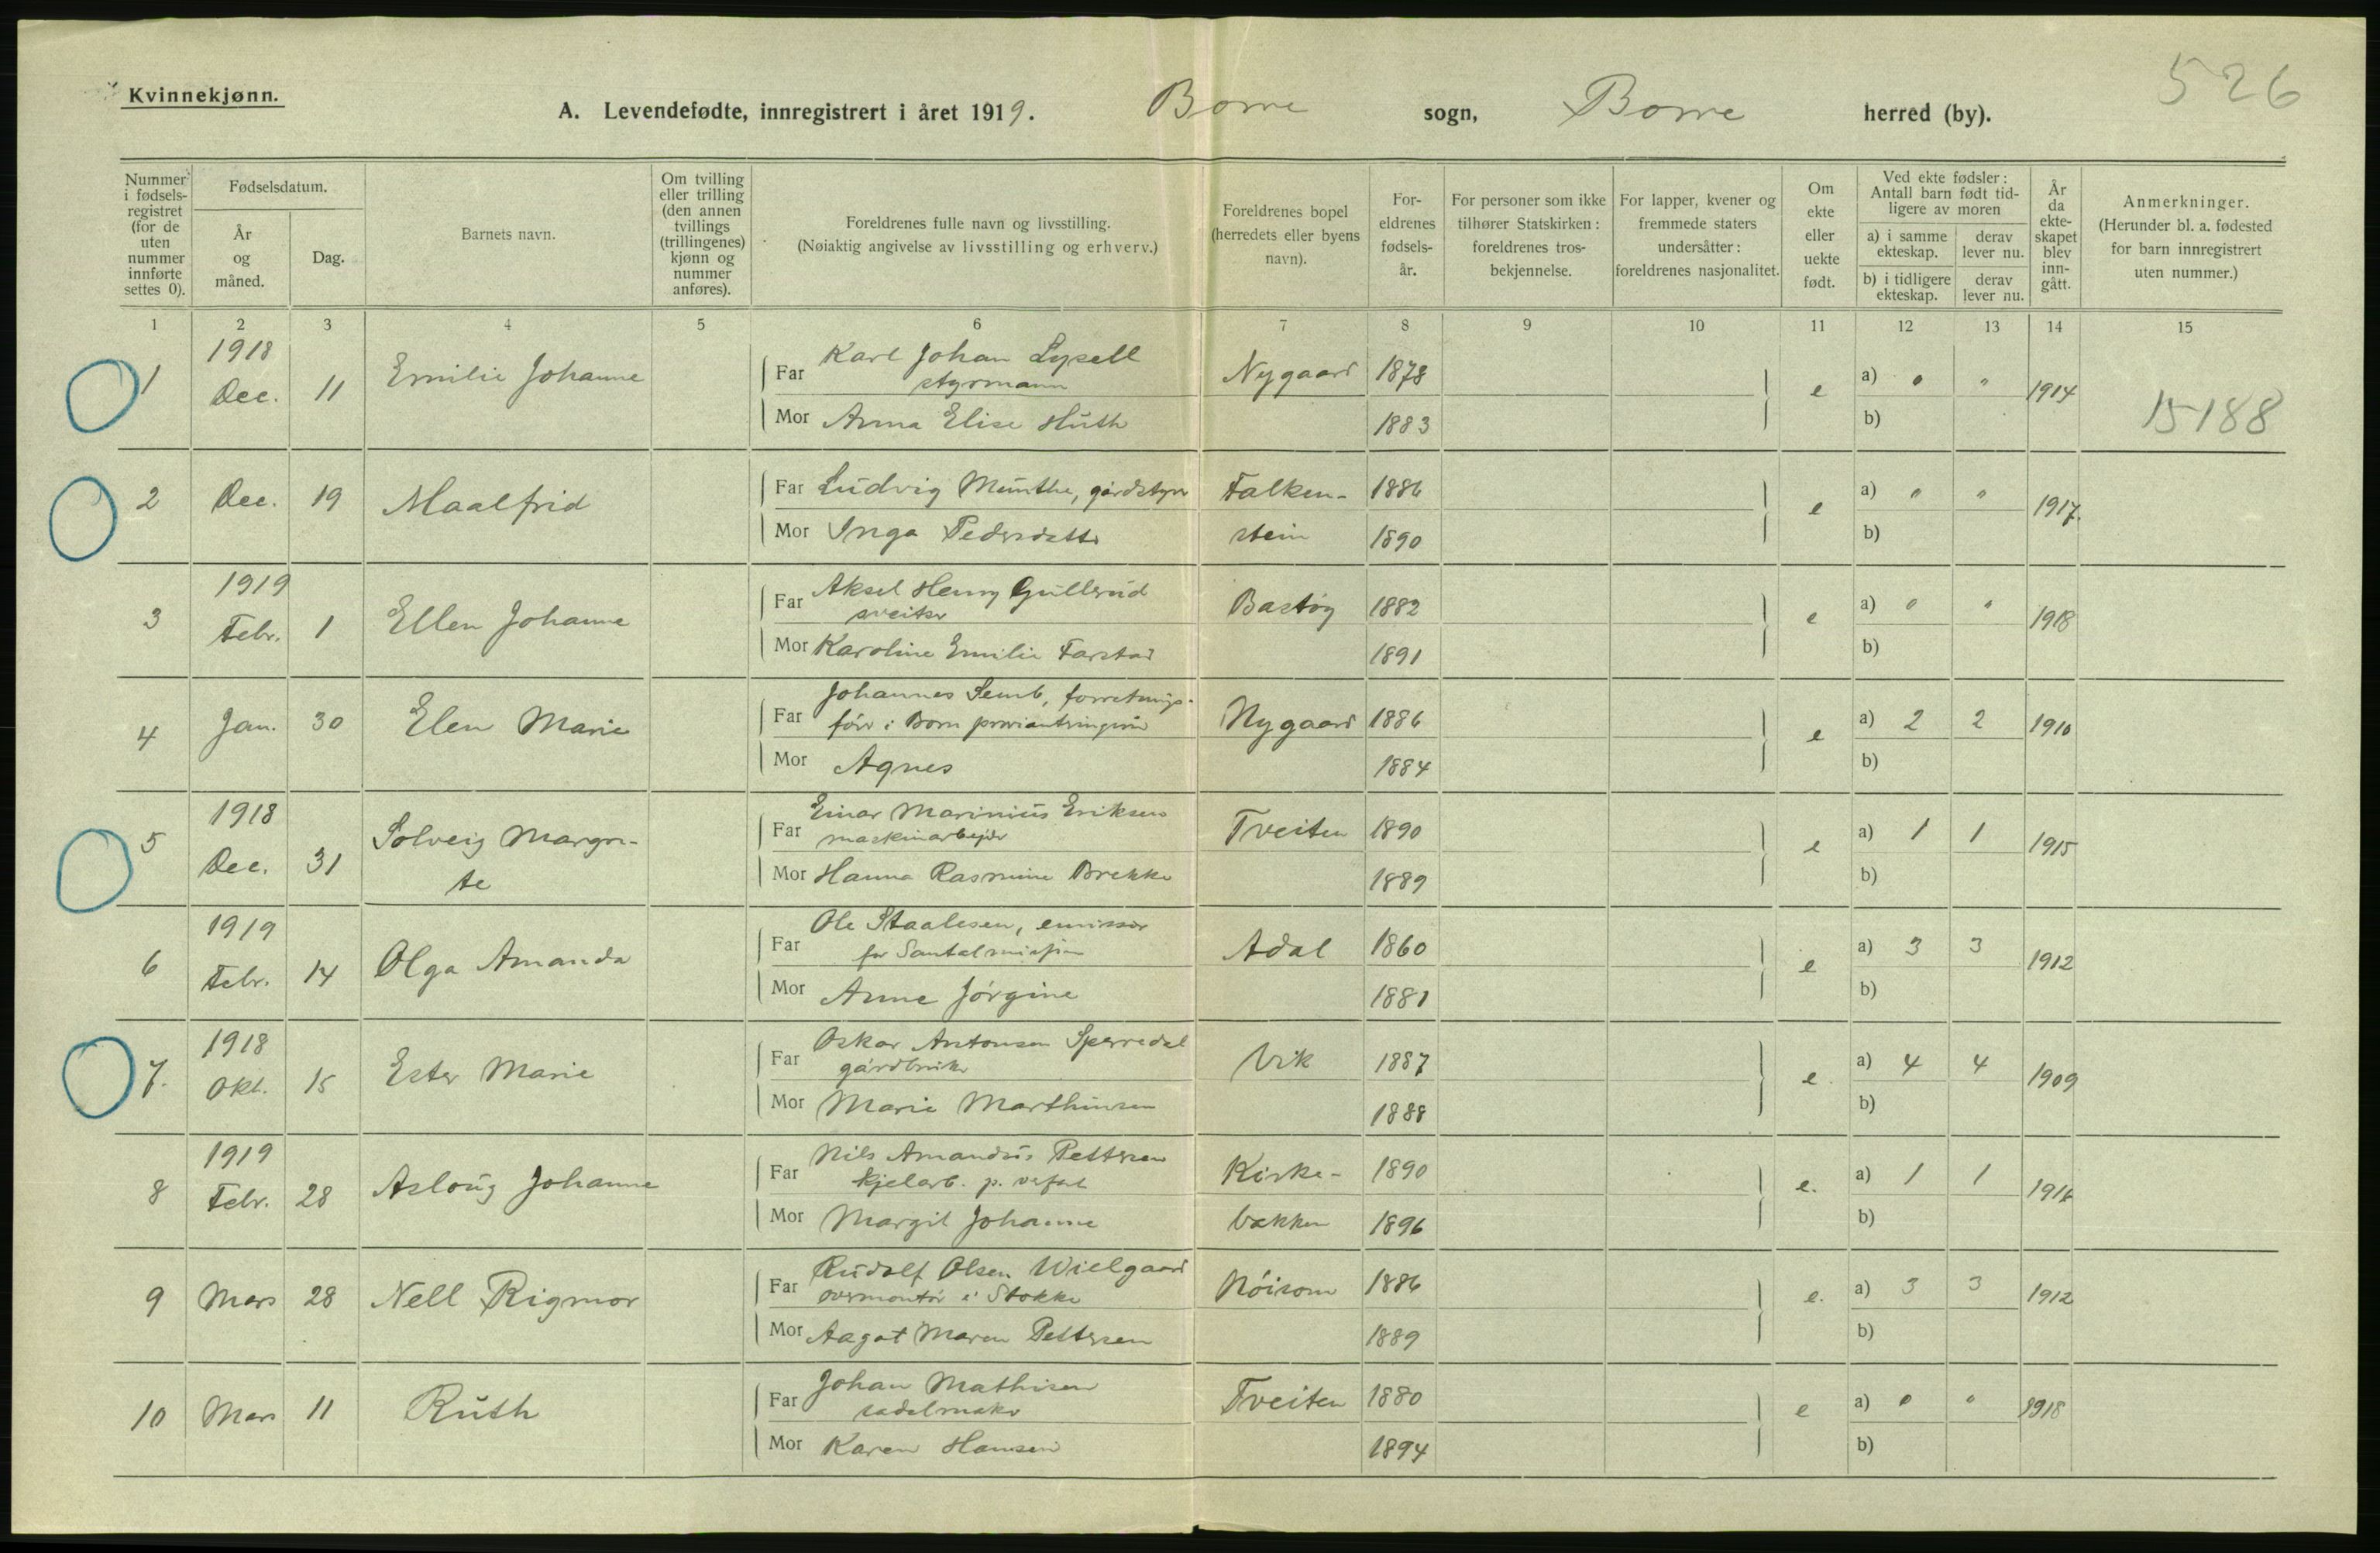 Kvinnekjønn.
526
A. Levendefødte, innregistrert i året 1919. Borre sogn, Borre herred (by).
Nummer i fødselsregistret (for de uten nummer innførte settes 0).
Fødselsdatum.
År og måned.
Dag.
Barnets navn.
Om tvilling eller trilling (den annen tvillings (trillingenes) kjønn og nummer anføres).
Foreldrenes fulle navn og livsstilling.
(Nøiaktig angivelse av livsstilling og erhverv.)
Foreldrenes bopel (herredets eller byens navn).
Foreldrenes fødselsår.
For personer som ikke tilhører Statskirken: foreldrenes trosbekjennelse.
For lapper, kvener og fremmede staters undersåtter: foreldrenes nasjonalitet.
Om ekte eller uekte født.
Ved ekte fødsler: Antall barn født tidligere av moren
a) i samme ekteskap.
derav lever nu.
b) i tidligere ekteskap.
derav lever nu.
År da ekteskapet blev inngått.
Anmerkninger.
(Herunder bl. a. fødested for barn innregistrert uten nummer.)
1 2 3 4 5 6 7 8 9 10 11 12 13 14 15
1 1918 Dec. 11 Emilie Johanne
Far Karl Johan Lysell
styrmann
Nygaard 1878 e a) " " 1914
Mor Anna Elise Huth 1883 b)
15188
2 Dec. 19 Maalfrid
Far Ludvig Munthe, gårdstyr Falken- 1886 e a) " " 1917.
Mor Inga Pedersdatter stein 1890 b)
3 1919 Febr. 1 Ellen Johanne
Far Aksel Henry Gullerud
sveitser
Bastøy 1882 e a) " " 1918
Mor Karoline Emilie Farstad 1891 b)
4 Jan. 30 Elen Marie
Far Johannes Semb, forretnings-
fører i Borre provianteringsråd
Nygaard 1886 e a) 2 2 1910
Mor Agnes 1884 b)
5 1918 Dec. 31 Solveig Margre-
te
Far Einar Marinius Eriksen
maskinarbejder
Tveiten 1890 e a) 1 1 1915
Mor Hanna Rasmine Brekke 1889 b)
6 1919 Febr. 14 Olga Amanda
Far Ole Staalesen, emissær
for Santalmisjon
Adal 1860 e a) 3 3 1912
Mor Anne Jørgine 1881 b)
7. 1918 Okt. 15 Ester Marie
Far Oskar Antonsen Sperredal
gårdbruker
Vik 1887 e a) 4 4 1909
Mor Marie Marthinsen 1888 b)
8 1919 Febr. 28 Asloug Johanne
Far Nils Amandus Pettersen
kjelarb. p. verfted
Kirke- 1890 e. a) 1 1 1916
Mor Margit Johanne bakken 1896 b)
9 Mars 28 Nell Rigmor
Far Rudolf Olsen Wielgaard
overmontør i Stokke
Nøisom 1886 e. a) 3 3 1912
Mor Aagot Maren Pettersen 1889 b)
10 Mars 11 Ruth
Far Johan Mathisen
sadelmaker
Tveiten 1880 e a) " " 1918
Mor Karen Hansen 1894 b)